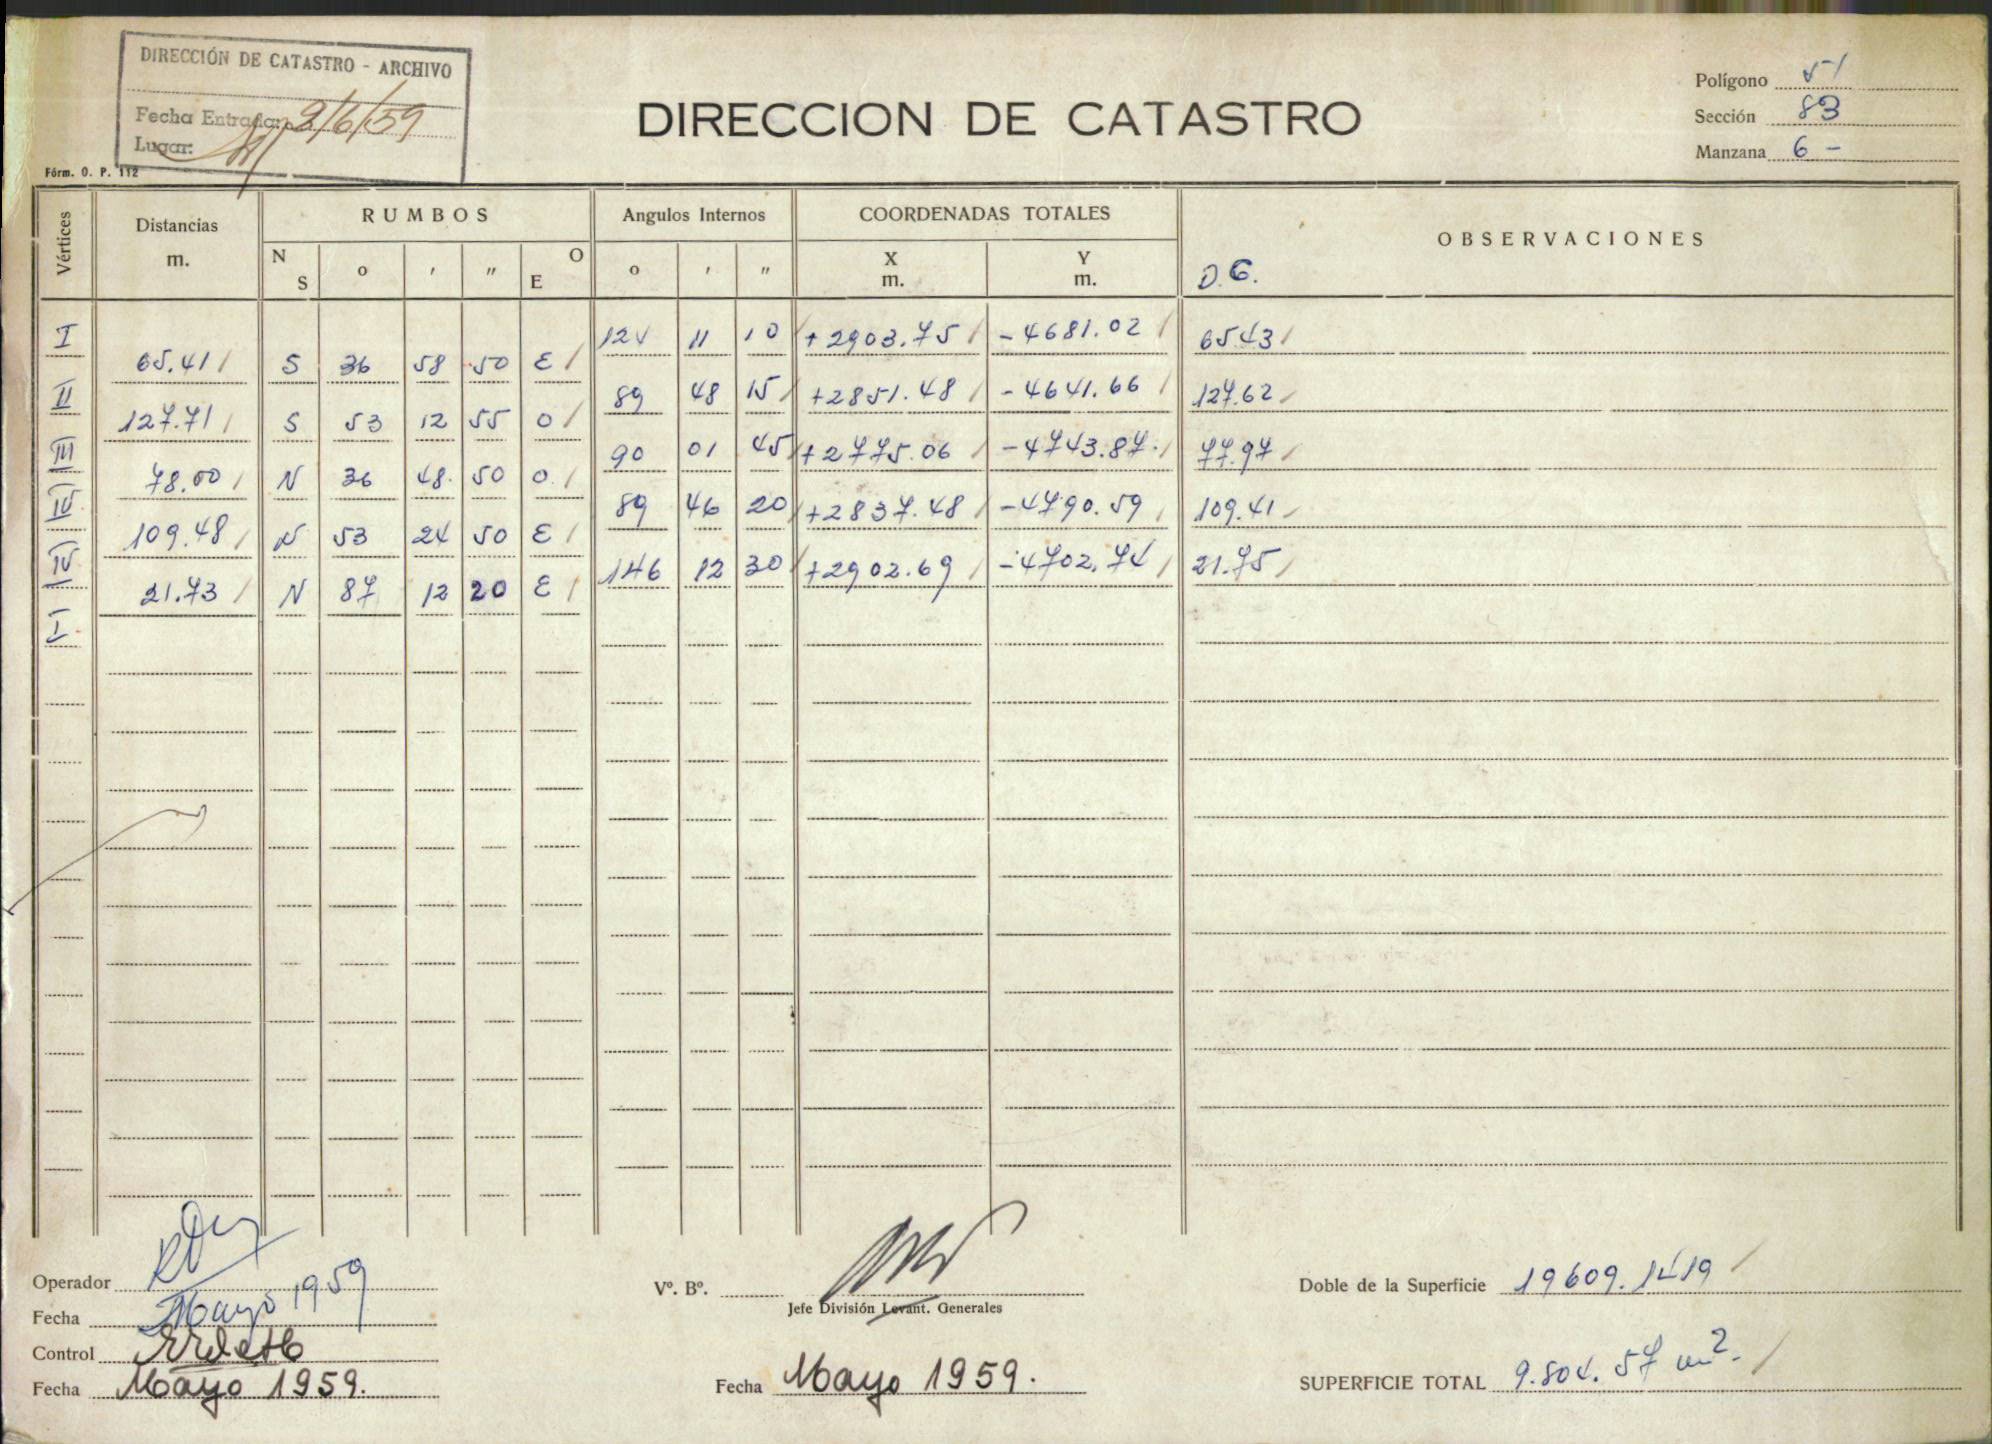 DIRECCIÓN DE CATASTRO - ARCHIVO
Fecha Entrada: 2/6/59
Lugar:
Fórm. O. P. 112
DIRECCION DE CATASTRO
Polígono 51
Sección 83
Manzana 6 -
Vértices Distancias m. RUMBOS Angulos Internos COORDENADAS TOTALES OBSERVACIONES
N S o ' " O E o ' " X m. Y m. D.G.
I 124 11 10 +2903.75 -4681.02 65.43
65.41 S 36 58 50 E
II 89 48 15 +2851.48 -4641.66 127.62
127.71 S 53 12 55 O
III 90 01 45 +2775.06 -4743.87 77.97
78.00 N 36 48 50 O
IV 89 46 20 +2837.48 -4790.59 109.41
109.48 N 53 24 50 E
IV 146 12 30 +2902.69 -4702.74 21.75
21.73 N 87 12 20 E
I
Operador
Fecha Mayo 1959
Control
Fecha Mayo 1959.
Vº. Bº.
Jefe División Levant. Generales
Fecha Mayo 1959.
Doble de la Superficie 19609.1419
SUPERFICIE TOTAL 9.804.57 m².